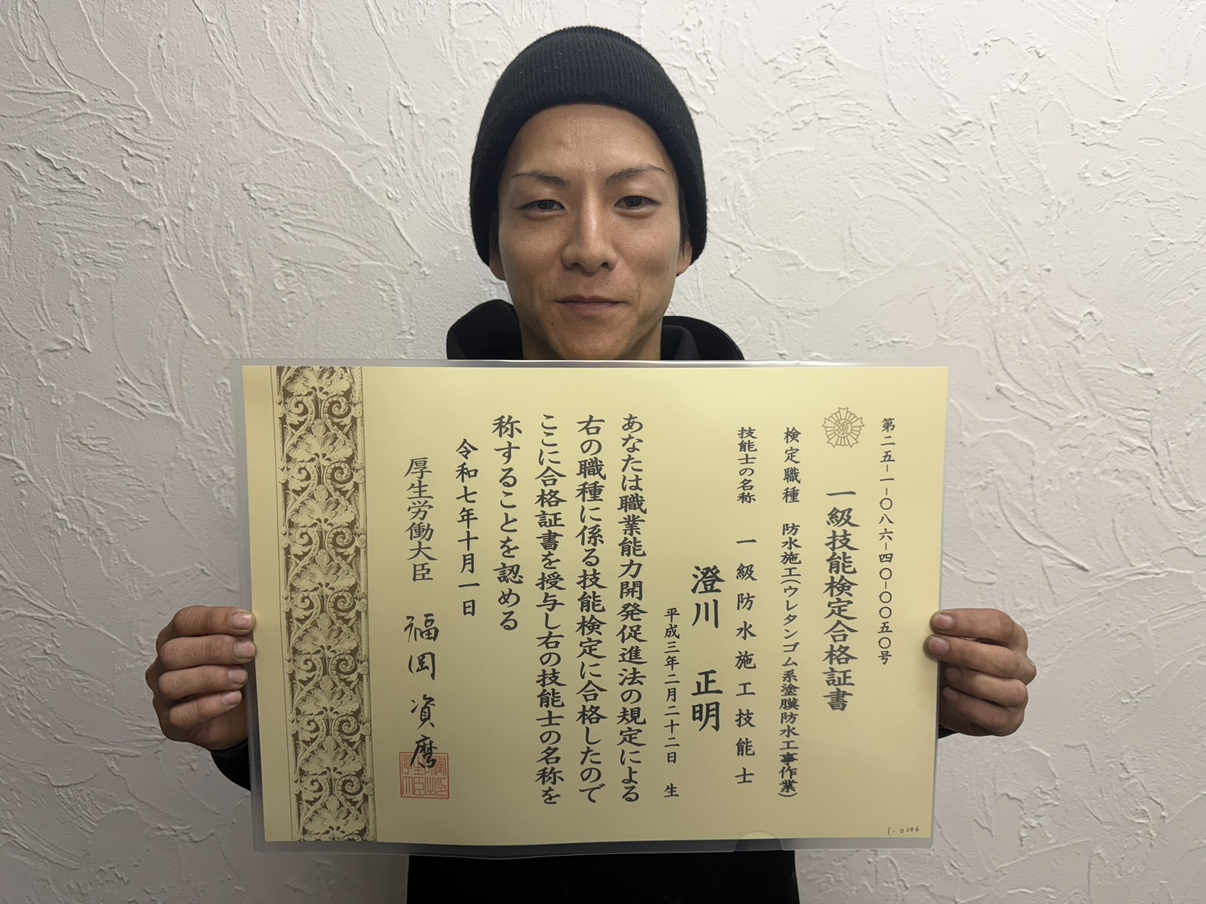 第二五-一-〇八六-四〇-〇〇五〇号
一級技能検定合格証書
検定職種 防水施工(ウレタンゴム系塗膜防水工事作業)
技能士の名称 一級防水施工技能士
澄川 正明
平成三年二月二十二日 生
あなたは職業能力開発促進法の規定による
右の職種に係る技能検定に合格したので
ここに合格証書を授与し右の技能士の名称を
称することを認める
令和七年十月一日
厚生労働大臣 福岡資麿